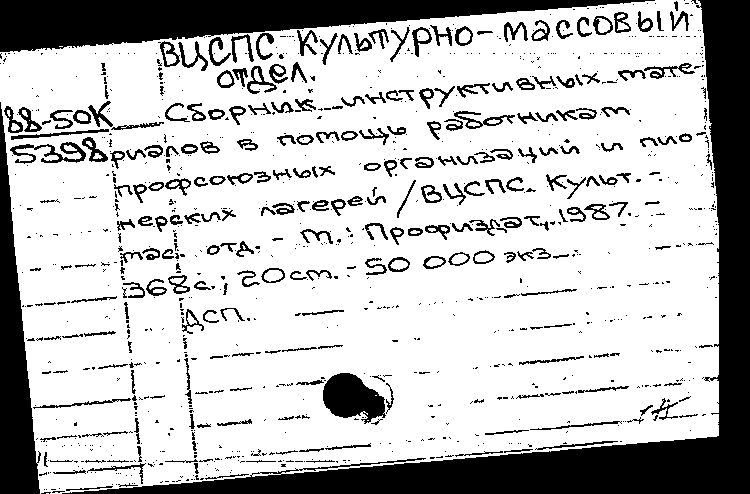 ВЦСПС. Культурно-массовый
отдел.
88-50К
5398
Сборник инструктивных мате-
риалов в помощь работникам
профсоюзных организаций и пио-
нерских лагерей / ВЦСПС. Культ.-
мас. отд. - М.: Профиздат, 1987. -
368 с.; 20 см. - 50 000 экз.
ДСП.